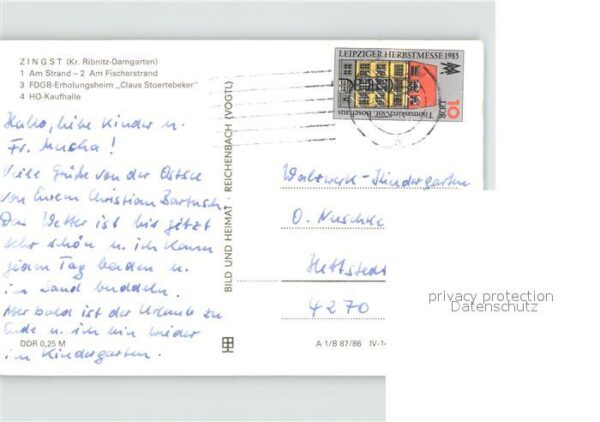 ZINGST (Kr. Ribnitz-Damgarten)
1 Am Strand – 2 Am Fischerstrand
3 FDGB-Erholungsheim „Claus Stoertebeker"
4 HO-Kaufhalle
Hallo, liebe Kinder u.
Fr. Mucha!
Viele Grüße von der Ostsee
von Eurem Christian Bartusch.
Das Wetter ist bis jetzt
sehr schön u. ich kann
jeden Tag baden u.
im Sand buddeln.
Aber bald ist der Urlaub zu
Ende u. ich bin wieder
im Kindergarten.
DDR 0,25 M
BILD UND HEIMAT · REICHENBACH (VOGTL)
A 1/B 87/86 IV-14
LEIPZIGER HERBSTMESSE 1985
10
DDR
Thomaskirchhof · Bosehaus
Walzwerk-Kindergarten
O. Nuschke
Hettstedt
4270
privacy protection
Datenschutz